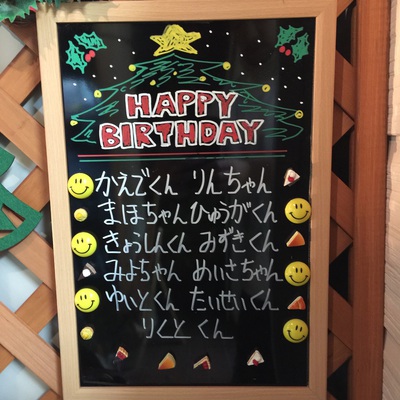 HAPPY
BIRTHDAY
かえでくん りんちゃん
まほちゃん ひゅうがくん
きょうしんくん みずきくん
みよちゃん めいさちゃん
ゆいとくん たいせいくん
りくと くん